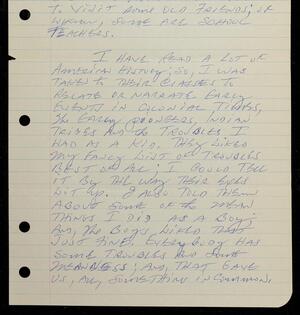 To visit some old friends; of
whom, some are school
teachers.
I have read a lot of
American History; so, I was
taken to their classes to
relate or narrate early
events in colonial times,
the early pioneers, Indian
tribes and the troubles I
had as a kid. They liked
my fancy list of troubles
best of all; I could tell
it by the way their eyes
lit up. I also told them
about some of the mean
things I did as a boy;
and, the boys liked that
just fine. Everybody has
some troubles and some
meanness; and, that gave
us, all, something in common.